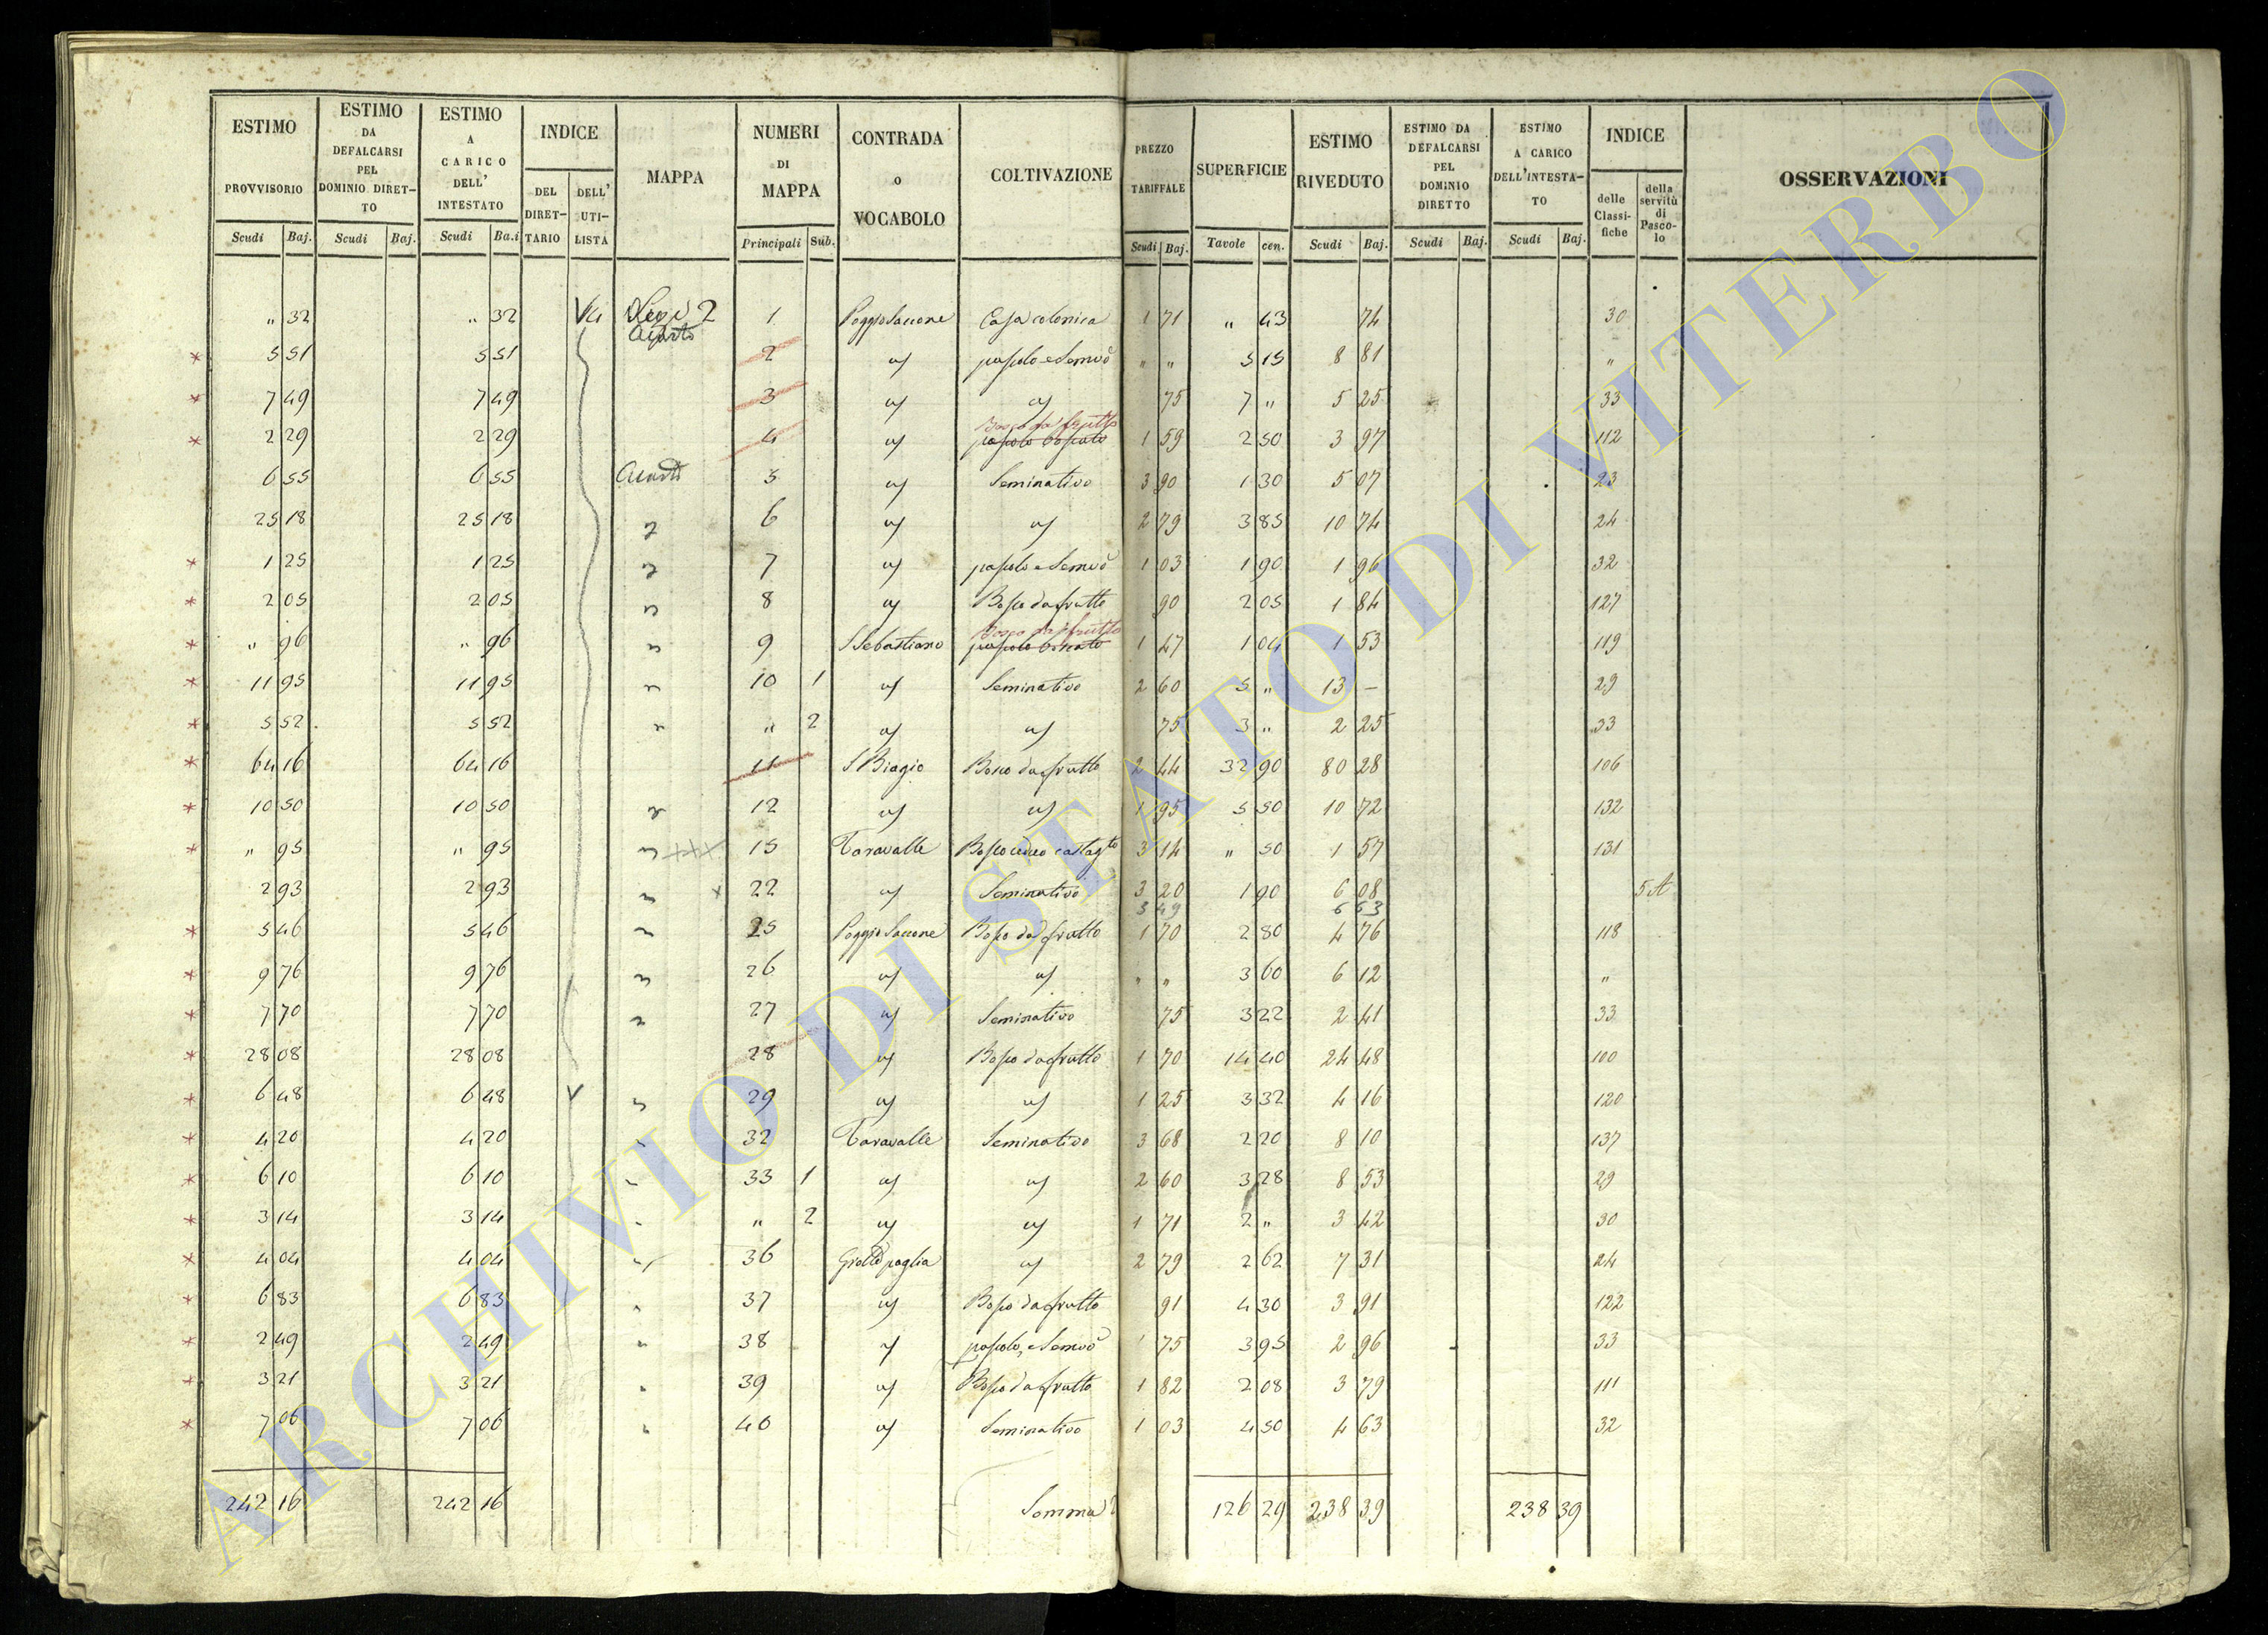 ESTIMO PROVVISORIO Scudi Baj. | ESTIMO DA DEFALCARSI PEL DOMINIO DIRET-TO Scudi Baj. | ESTIMO A CARICO DELL' INTESTATO Scudi Ba.i | INDICE DEL DIRET-TARIO DELL' UTI-LISTA | MAPPA | NUMERI DI MAPPA Principali Sub. | CONTRADA o VOCABOLO | COLTIVAZIONE | PREZZO TARIFFALE Scudi Baj. | SUPERFICIE Tavole cen. | ESTIMO RIVEDUTO Scudi Baj. | ESTIMO DA DEFALCARSI PEL DOMINIO DIRETTO Scudi Baj. | ESTIMO A CARICO DELL'INTESTA-TO Scudi Baj. | INDICE delle Classi-fiche della servitù di Pasco-lo | OSSERVAZIONI
" 32 | " 32 | 1 | Poggio Saccone | Casa colonica | 1 71 | " 43 | 74 | 30
* 5 51 | 5 51 | 2 | " | pascolo e Semvo | " " | 5 15 | 8 81 | "
* 7 49 | 7 49 | 3 | " | " | 75 | 7 " | 5 25 | 33
* 2 29 | 2 29 | 4 | " | Bosco da frutto pascolo boscato | 1 59 | 2 50 | 3 97 | 112
6 55 | 6 55 | 5 | " | Seminativo | 3 90 | 1 30 | 5 07 | 23
25 18 | 25 18 | " | 6 | " | " | 2 79 | 3 85 | 10 74 | 24
* 1 25 | 1 25 | " | 7 | " | pascolo e Semvo | 1 03 | 1 90 | 1 96 | 32
* 2 05 | 2 05 | " | 8 | " | Bosco da frutto | 90 | 2 05 | 1 84 | 127
* " 96 | " 96 | " | 9 | S Sebastiano | Bosco da frutto pascolo boscato | 1 47 | 1 04 | 1 53 | 119
* 11 95 | 11 95 | " | 10 1 | " | Seminativo | 2 60 | 5 " | 13 — | 29
* 5 52 | 5 52 | " | " 2 | " | " | 75 | 3 " | 2 25 | 33
* 64 16 | 64 16 | 11 | S Biagio | Bosco da frutto | 2 44 | 32 90 | 80 28 | 106
* 10 50 | 10 50 | " | 12 | " | " | 1 95 | 5 50 | 10 72 | 132
* " 95 | " 95 | " +++ | 15 | Taravalle | Bosco ceduo castagto | 3 14 | " 50 | 1 57 | 131
2 93 | 2 93 | " x | 22 | " | Seminativo | 3 20 | 1 90 | 6 08 | 5 A
3 49 | 6 63
* 5 46 | 5 46 | " | 25 | Poggio Saccone | Bosco da frutto | 1 70 | 2 80 | 4 76 | 118
* 9 76 | 9 76 | " | 26 | " | " | " " | 3 60 | 6 12 | "
* 7 70 | 7 70 | " | 27 | " | Seminativo | 75 | 3 22 | 2 41 | 33
* 28 08 | 28 08 | 28 | " | Bosco da frutto | 1 70 | 14 40 | 24 48 | 100
* 6 48 | 6 48 | " | 29 | " | " | 1 25 | 3 32 | 4 16 | 120
* 4 20 | 4 20 | " | 32 | Taravalle | Seminativo | 3 68 | 2 20 | 8 10 | 137
* 6 10 | 6 10 | " | 33 1 | " | " | 2 60 | 3 28 | 8 53 | 29
* 3 14 | 3 14 | " | " 2 | " | " | 1 71 | 2 " | 3 42 | 30
* 4 04 | 4 04 | " | 36 | paglia | " | 2 79 | 2 62 | 7 31 | 24
* 6 83 | 6 83 | " | 37 | " | Bosco da frutto | 91 | 4 30 | 3 91 | 122
* 2 49 | 2 49 | " | 38 | " | pascolo, e Semvo | 75 | 3 95 | 2 96 | 33
* 3 21 | 3 21 | " | 39 | " | Bosco da frutto | 1 82 | 2 08 | 3 79 | 111
* 7 06 | 7 06 | " | 40 | " | Seminativo | 1 03 | 4 50 | 4 63 | 32
242 16 | 242 16 | Somma | 126 29 | 238 39 | 238 39
ARCHIVIO DI STATO DI VITERBO